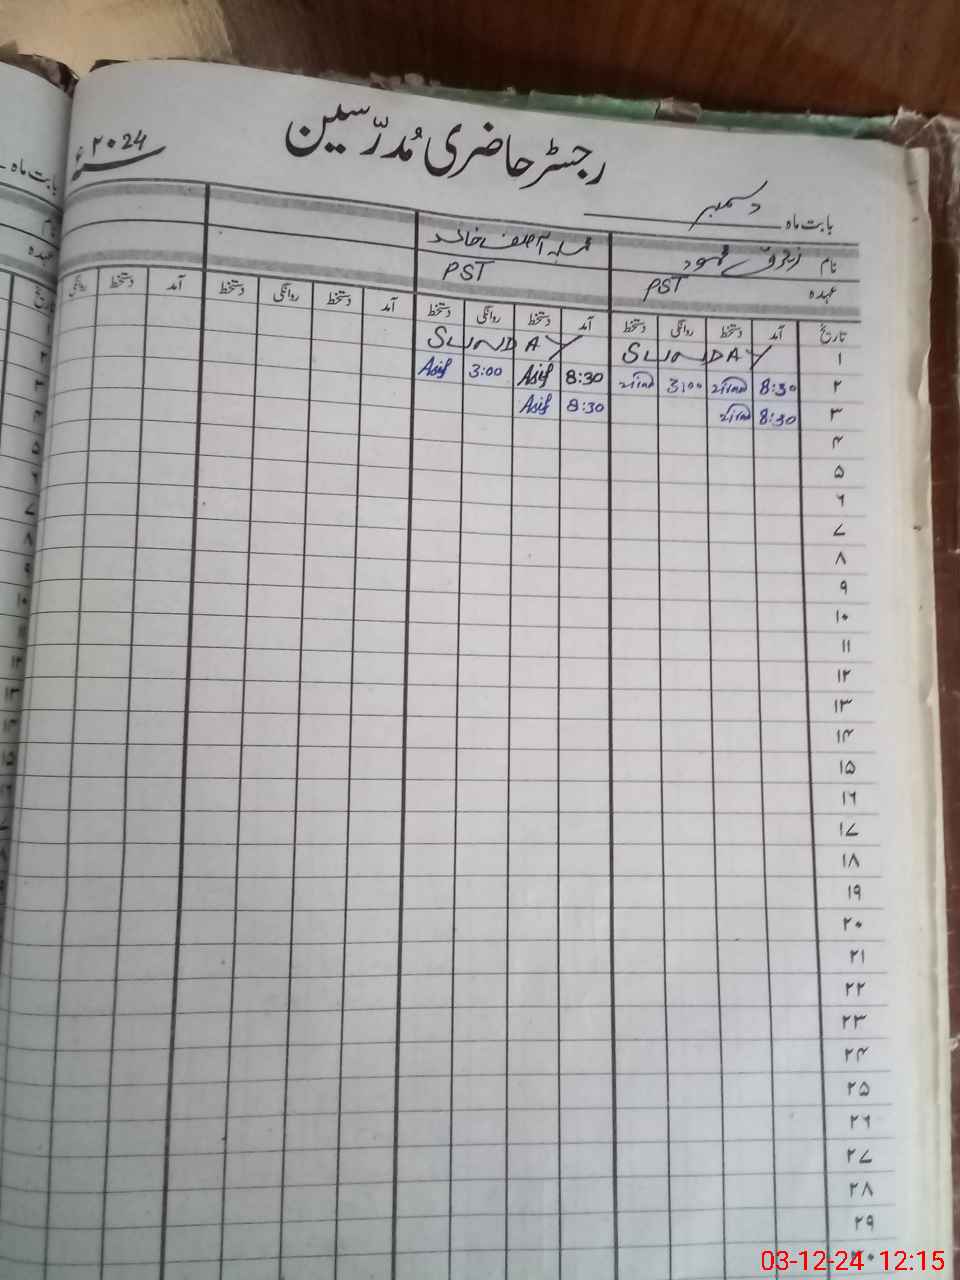 رجسٹر حاضری مُدرّسین
بابت ماہ دسمبر ۲۰24ء
نام محمود محمد آصف خالد
عہدہ PST PST
تاریخ آمد دستخط روانگی دستخط آمد دستخط روانگی دستخط آمد دستخط روانگی دستخط آمد دستخط روانگی
۱ SUNDAY SUNDAY
۲ 8:30 3:00 8:30 Asif 3:00 Asif
۳ 8:30 8:30 Asif
۴
۵
۶
۷
۸
۹
۱۰
۱۱
۱۲
۱۳
۱۴
۱۵
۱۶
۱۷
۱۸
۱۹
۲۰
۲۱
۲۲
۲۳
۲۴
۲۵
۲۶
۲۷
۲۸
۲۹
۳۰
03-12-24 12:15